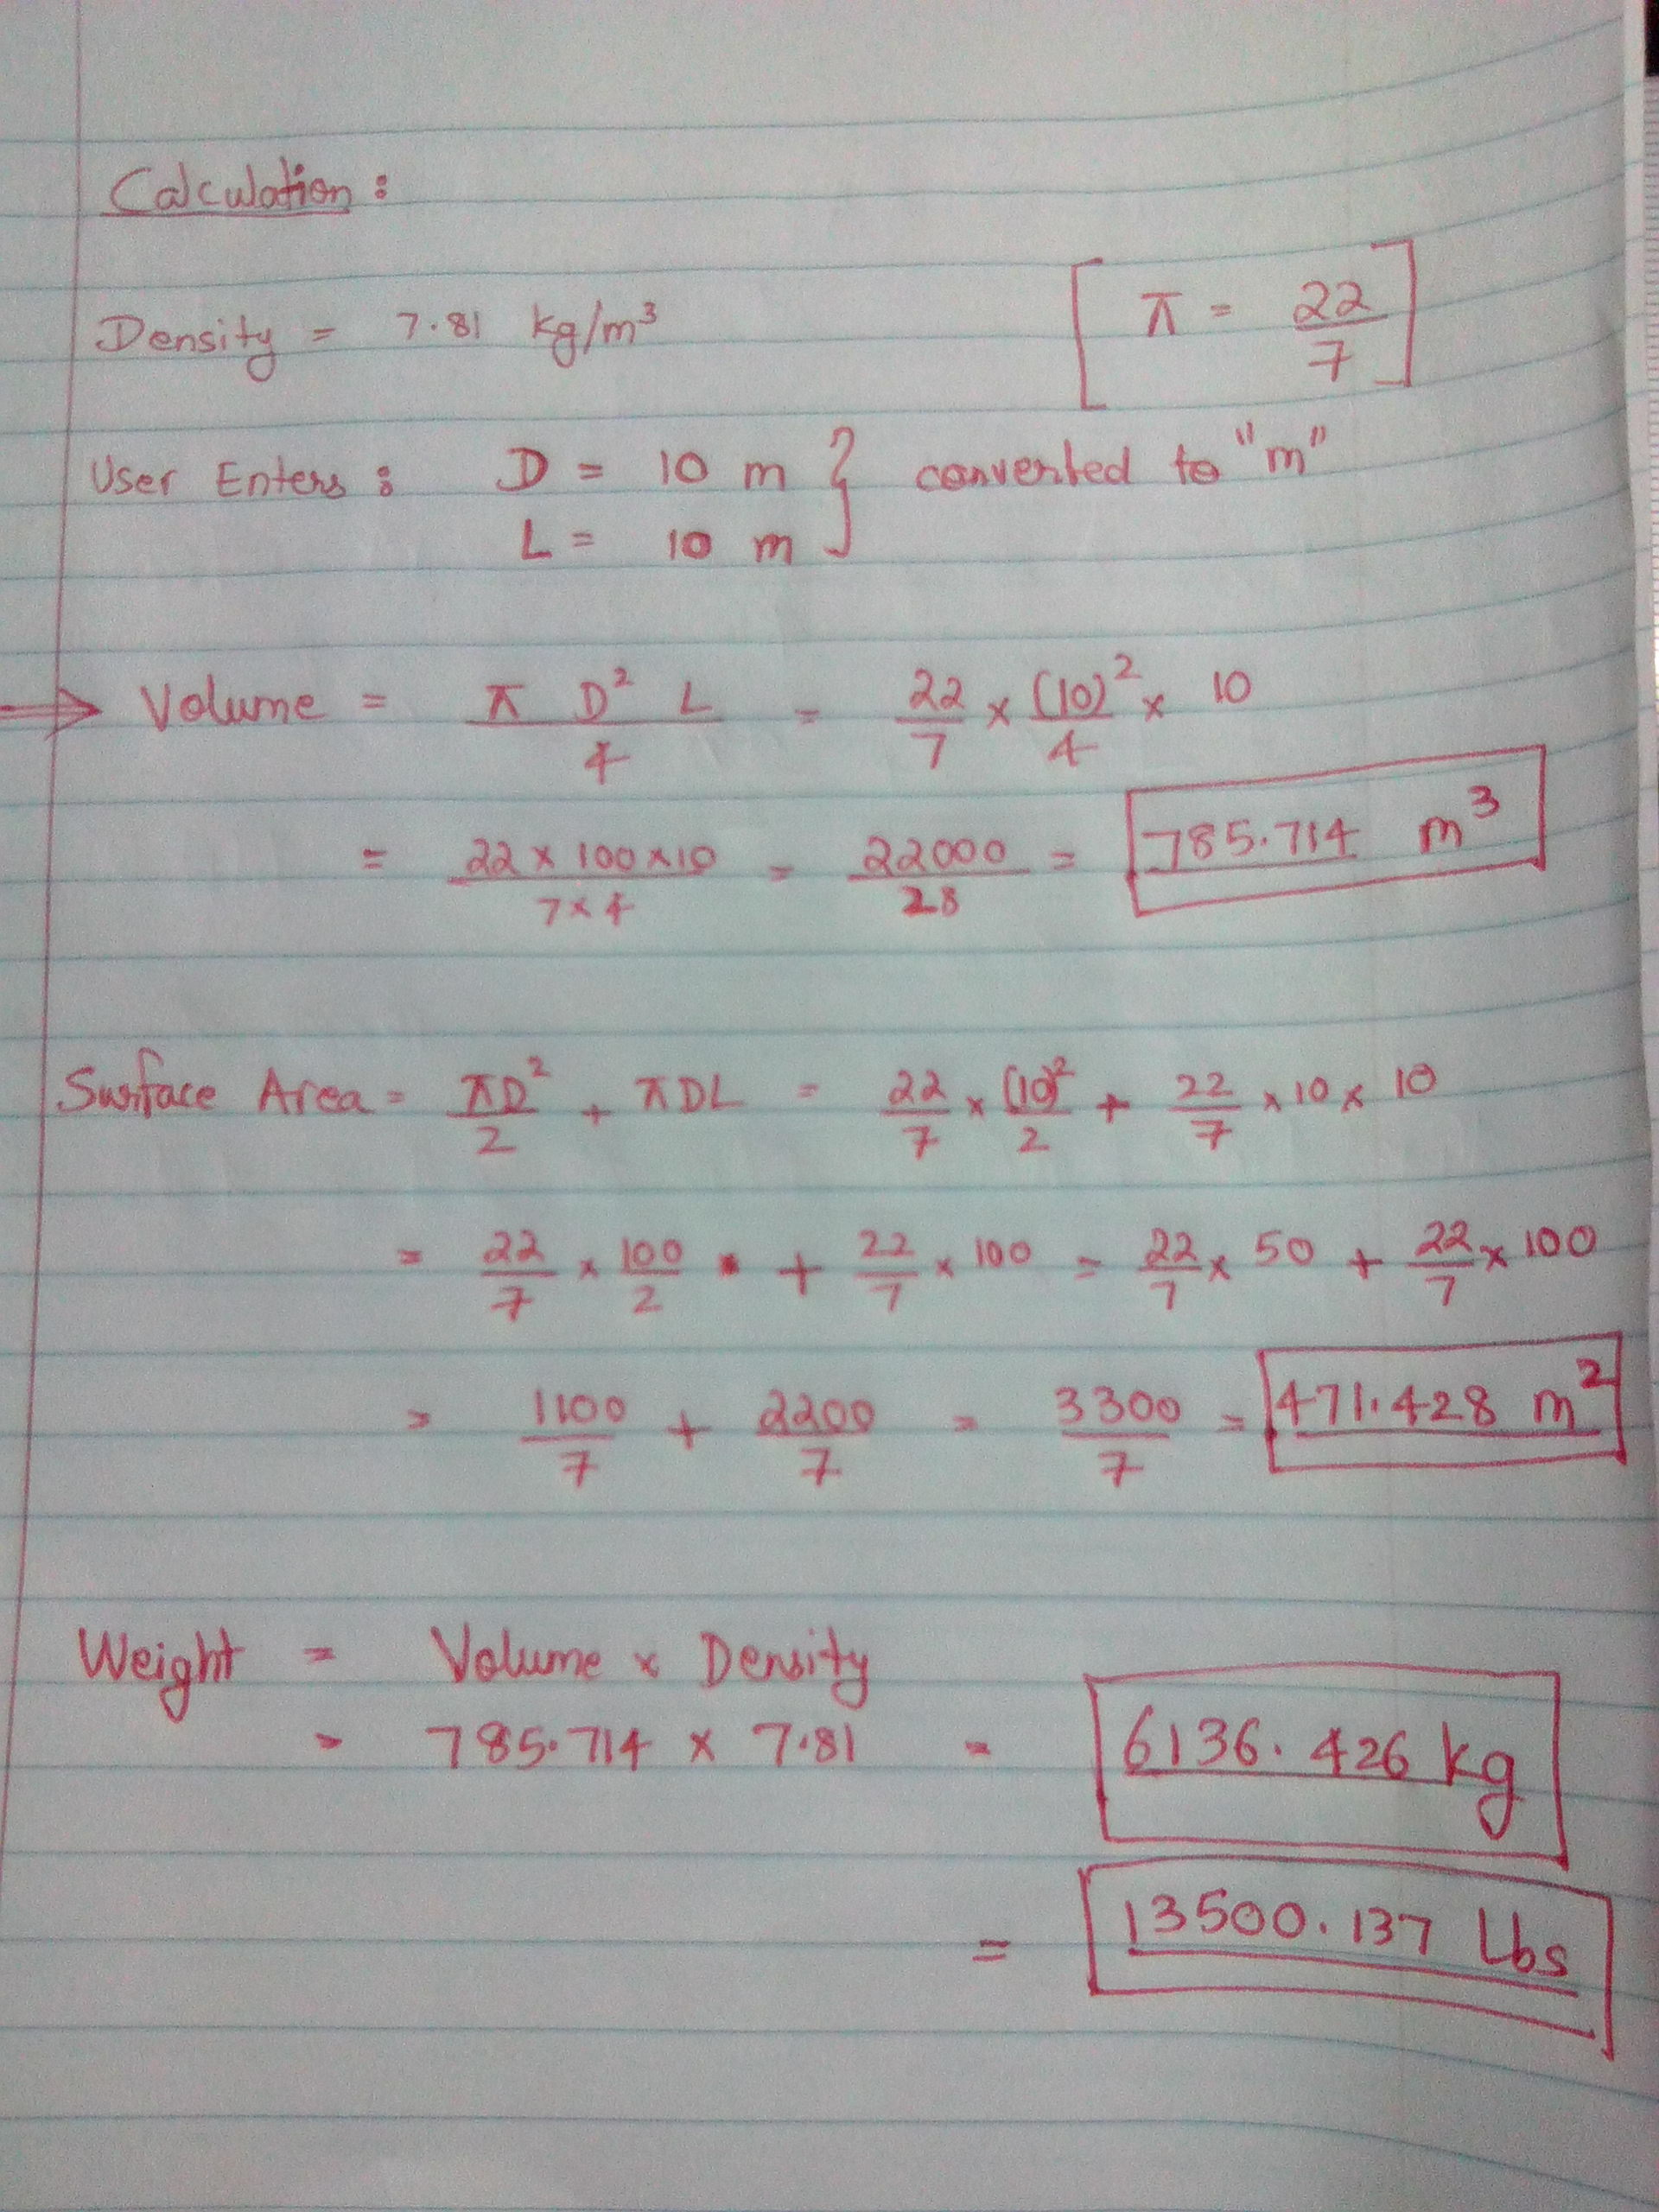 Calculation :
Density = 7.81 kg/m³ [ π = 22/7 ]
User Enters : D = 10 m } converted to "m"
L = 10 m
⇒ Volume = π D² L / 4 = 22/7 × (10)²/4 × 10
= 22 × 100 × 10 / 7 × 4 = 22000/28 = 785.714 m³
Surface Area = πD²/2 + πDL = 22/7 × (10)²/2 + 22/7 × 10 × 10
= 22/7 × 100/2 + 22/7 × 100 = 22/7 × 50 + 22/7 × 100
= 1100/7 + 2200/7 = 3300/7 = 471.428 m²
Weight = Volume × Density
= 785.714 × 7.81 = 6136.426 kg
= 13500.137 Lbs